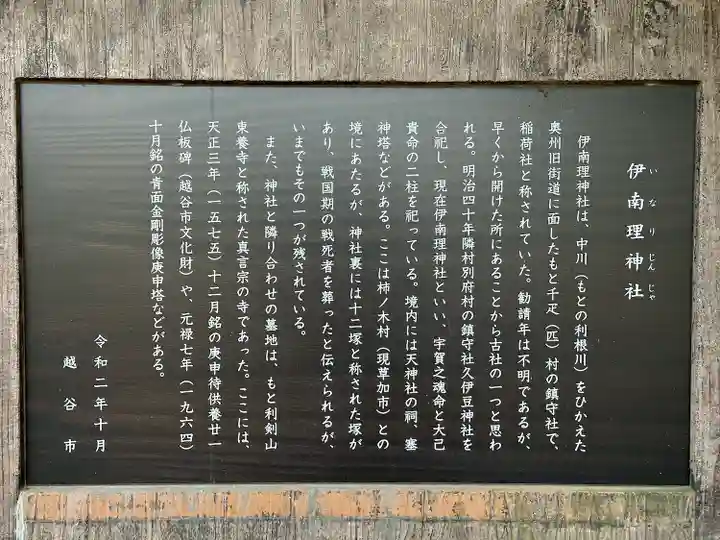 伊南理神社
いなりじんじゃ
伊南理神社は、中川（もとの利根川）をひかえた
奥州旧街道に面したもと千疋（匹）村の鎮守社で、
稲荷社と称されていた。勧請年は不明であるが、
早くから開けた所にあることから古社の一つと思わ
れる。明治四十年隣村別府村の鎮守社久伊豆神社を
合祀し、現在伊南理神社といい、宇賀之魂命と大己
貴命の二柱を祀っている。境内には天神社の祠、塞
神塔などがある。ここは柿ノ木村（現草加市）との
境にあたるが、神社裏には十二塚と称された塚が
あり、戦国期の戦死者を葬ったと伝えられるが、
いまでもその一つが残されている。
また、神社と隣り合わせの墓地は、もと利剣山
東養寺と称された真言宗の寺であった。ここには、
天正三年（一五七五）十二月銘の庚申待供養廿一
仏板碑（越谷市文化財）や、元禄七年（一九六四）
十月銘の青面金剛彫像庚申塔などがある。
令和二年十月
越谷市